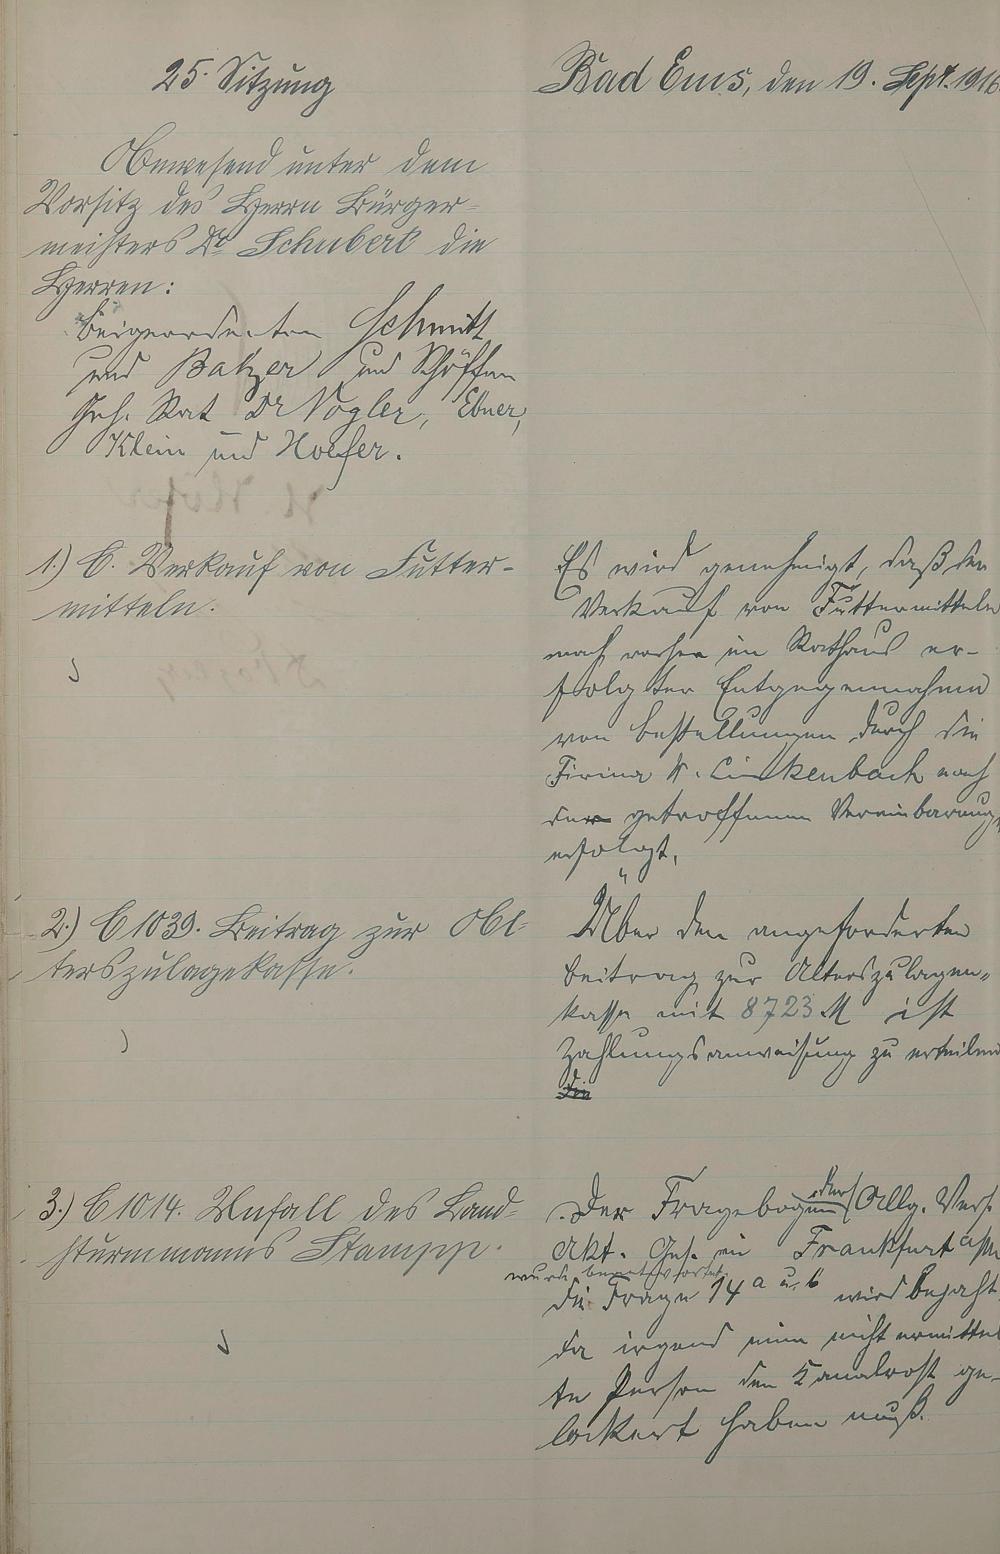 25. Sitzung
Bad Ems, den 19. Sept. 1916.
Anwesend unter dem
Vorsitz des Herrn Bürger-
meisters Dr. Schubert die
Herren:
Beigeordneten Schmitt
und Balzer und Schöffen
Geh. Rat Dr Vogler, Ebner,
Klein und Hoefer.
1.) C. Verkauf von Futter-
mitteln.
Es wird genehmigt, daß der
Verkauf von Futtermitteln
nach vorher im Rathaus er-
folgter Entgegennahme
von Bestellungen durch die
Firma K. Linkenbach nach
der getroffenen Vereinbarung
erfolgt.
2.) C 1039. Beitrag zur Al-
terszulagekasse.
Über den angeforderten
Beitrag zur Alterszulagen-
kasse mit 8723 M ist
Zahlungsanweisung zu erteilen
die
3.) C 1014. Unfall des Land-
sturmmanns Stampp.
Der Fragebogen der Allg. Vers.
Akt. Ges. in Frankfurt a/M
wurde beantwortet.
die Frage 14 a u. b wird bejaht,
da irgend eine nicht ermittel-
te Person den Kanalrost ge-
lockert haben muß.